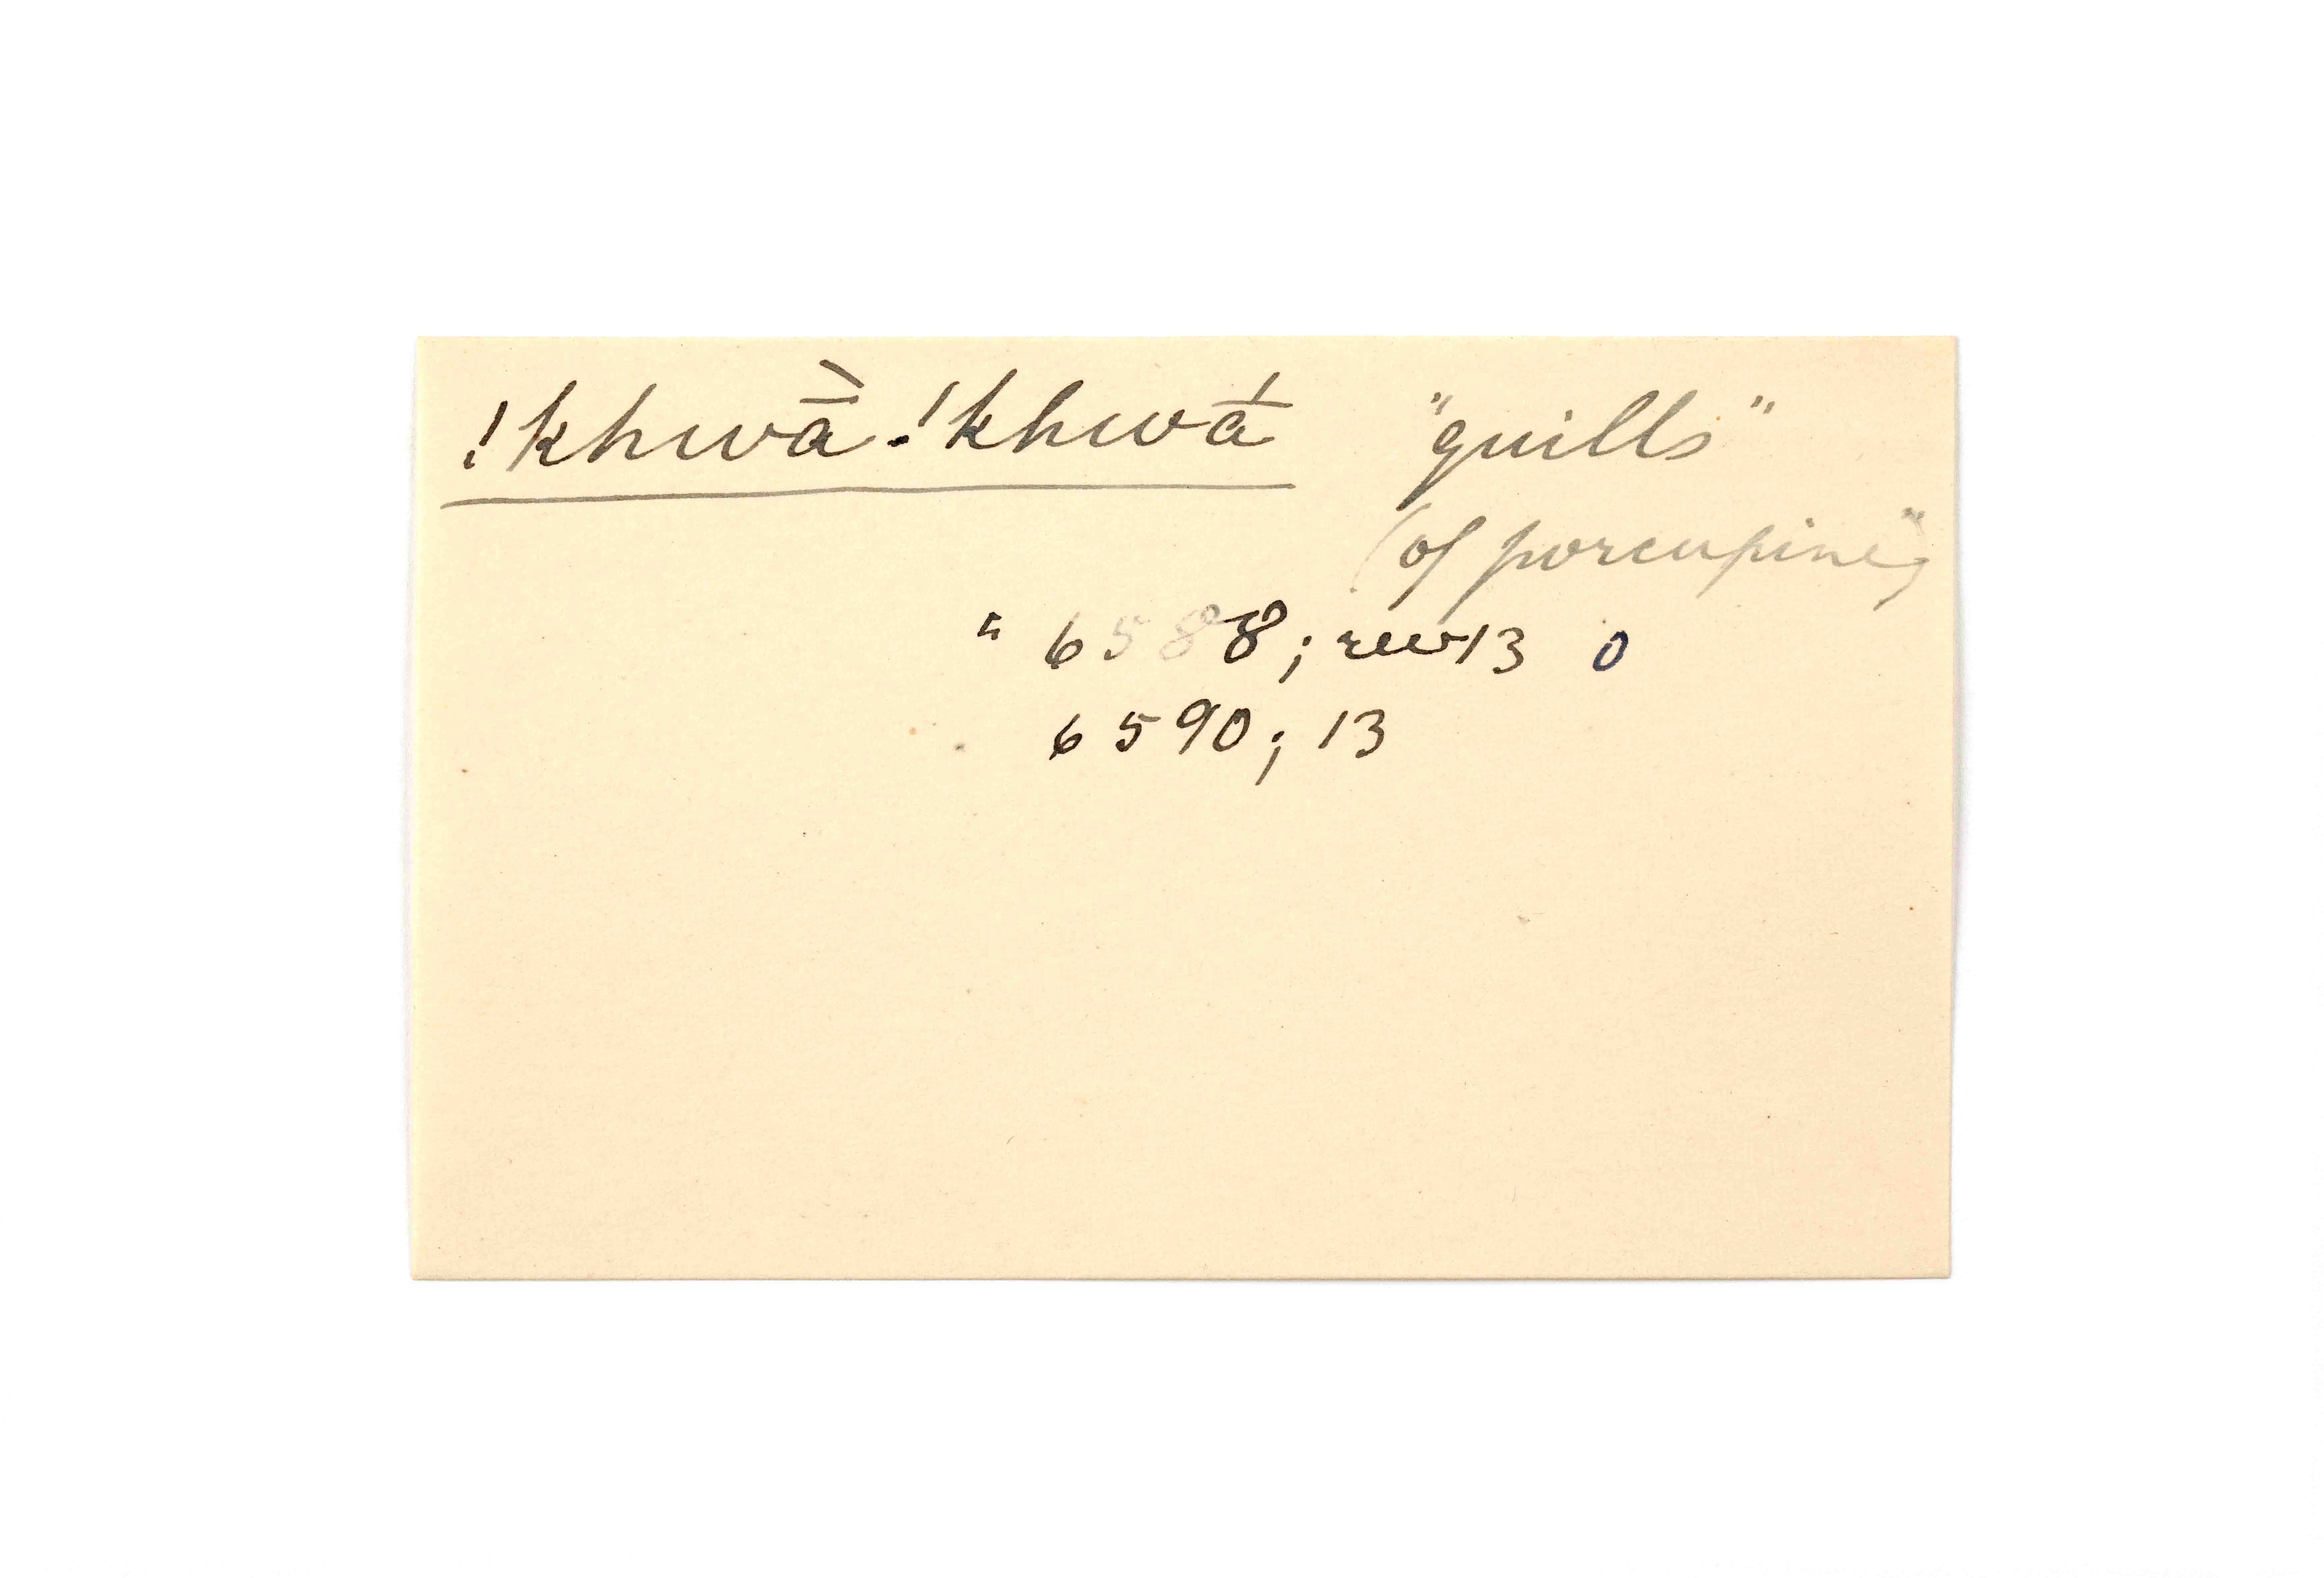 !khwā̀-!khwā́ "quills"
(of porcupine")
" 6588; rev 13 0
6590; 13